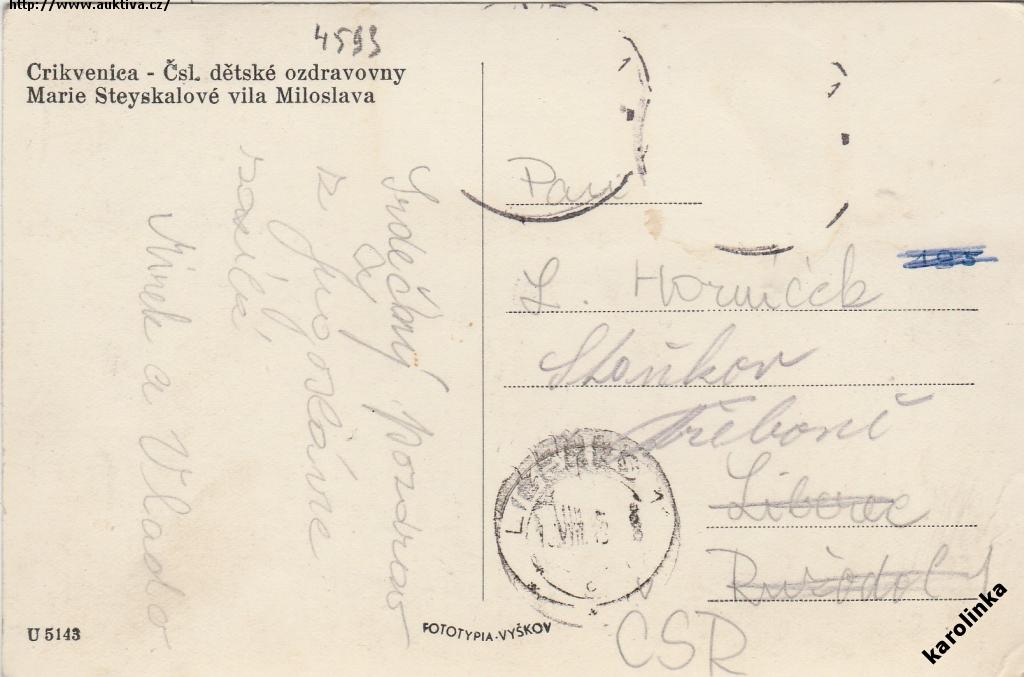 http://www.auktiva.cz/
4593
Crikvenica - Čsl. dětské ozdravovny
Marie Steyskalové vila Miloslava
Srdečný pozdrav
z Jugoslávie
Mirek a Vlado
Paní
L. Horníček
Třeboně
Liberec
Ružodol I
ČSR
LIBEREC 1
VIII. 
195
U 5143
FOTOTYPIA-VYŠKOV
karolinka